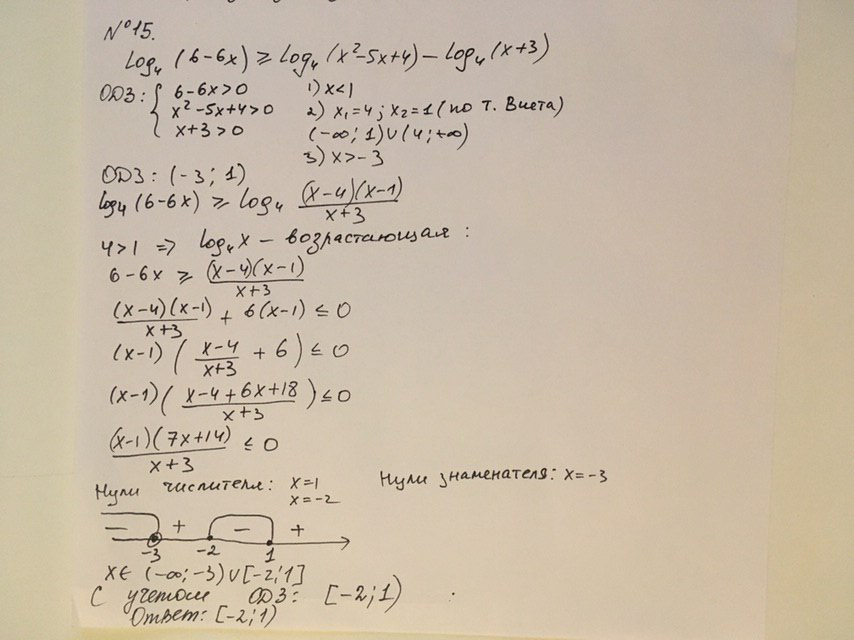 N°15.
log₄ (6-6x) ≥ log₄ (x²-5x+4) - log₄ (x+3)
ОДЗ: { 6-6x>0 1) x<1
x²-5x+4>0 2) x₁=4; x₂=1 (по т. Виета)
x+3>0 (-∞; 1)∪(4;+∞)
3) x>-3
ОДЗ: (-3; 1)
log₄ (6-6x) ≥ log₄ (x-4)(x-1)/(x+3)
4>1 => log₄ x - возрастающая:
6-6x ≥ (x-4)(x-1)/(x+3)
(x-4)(x-1)/(x+3) + 6(x-1) ≤ 0
(x-1) ( (x-4)/(x+3) + 6 ) ≤ 0
(x-1) ( (x-4+6x+18)/(x+3) ) ≤ 0
(x-1)(7x+14)/(x+3) ≤ 0
Нули числителя: x=1 Нули знаменателя: x=-3
x=-2
- + - +
-3 -2 1
x∈ (-∞;-3)∪[-2;1]
С учетом ОДЗ: [-2;1)
Ответ: [-2;1)